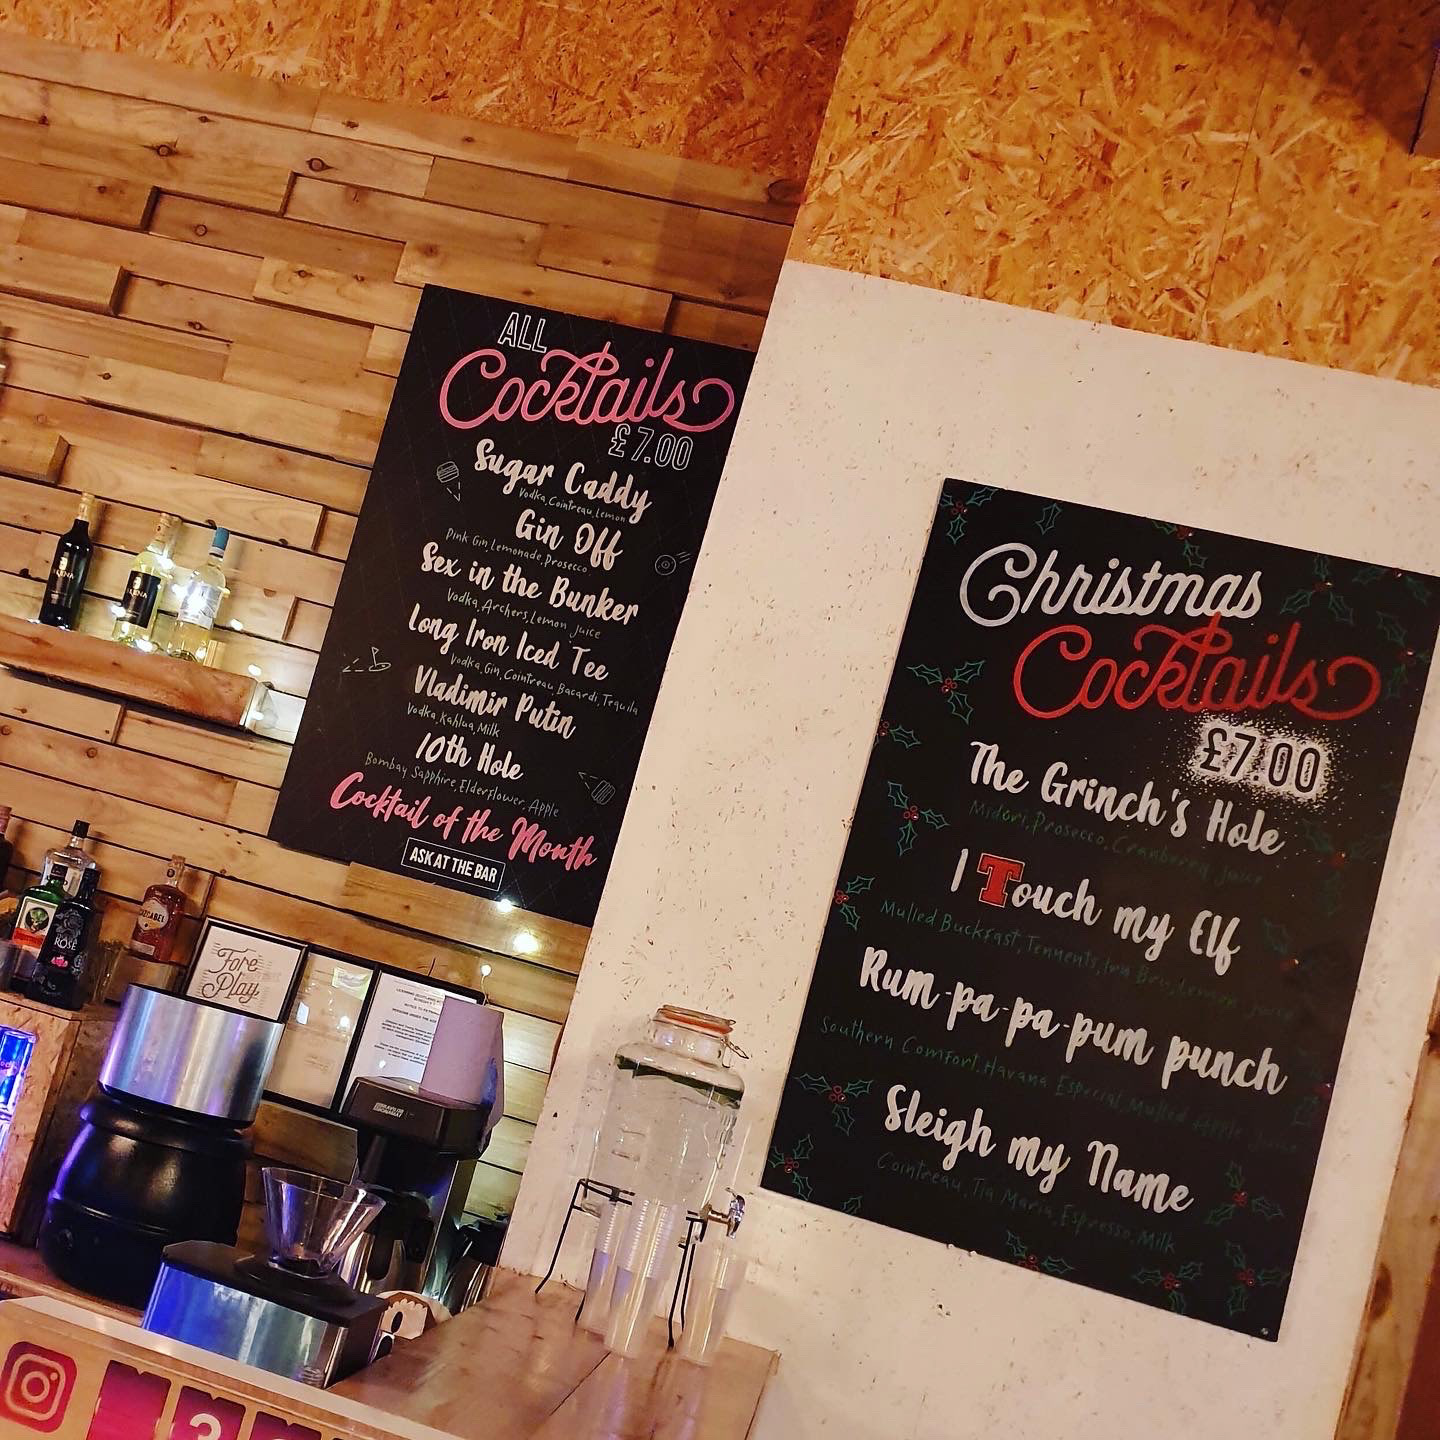 ALL
Cocktails
£7.00
Sugar Caddy
Vodka, Cointreau, Lemon
Gin Off
Pink Gin, Lemonade, Prosecco
Sex in the Bunker
Vodka, Archers, Lemon Juice
Long Iron Iced Tee
Vodka, Gin, Cointreau, Bacardi, Tequila
Vladimir Putin
Vodka, Kahlua, Milk
10th Hole
Bombay Sapphire, Elderflower, Apple
Cocktail of the Month
ASK AT THE BAR
Christmas
Cocktails
£7.00
The Grinch's Hole
Midori, Prosecco, Cranberry Juice
I Touch my Elf
Mulled Buckfast, Tennents, Irn Bru, Lemon Juice
Rum-pa-pa-pum punch
Southern Comfort, Havana Especial, Mulled Apple Juice
Sleigh my Name
Cointreau, Tia Maria, Espresso, Milk
Fore
Play
ROSE
3